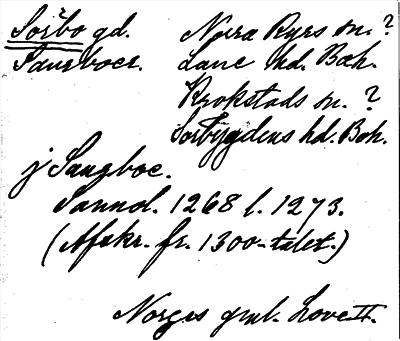 Sörbo gd. Norra Ryrs sn.?
Saurboer. Lane hd. Boh.
Krokstads sn.?
Sörbygdens hd. Boh.
j Saugboe.
Sannol. 1268 l. 1273.
(Afskr. fr. 1300-talet.)
Norges gml. Love II.